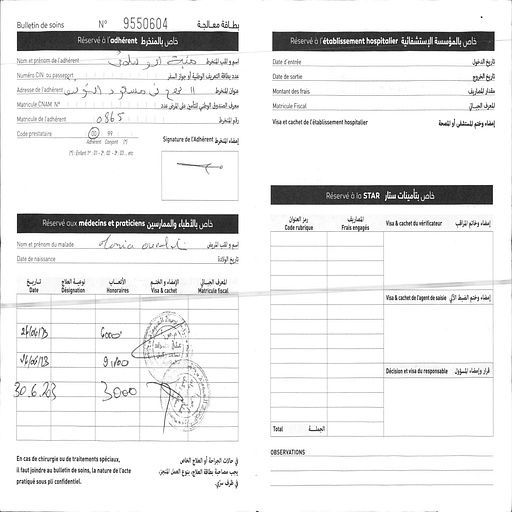 Bulletin de soins N° 9550604 بطاقة معالجة
Réservé à l'adhérent خاص بالمنخرط
Nom et prénom de l'adhérent اسم و لقب المنخرط
Numéro CIN ou passeport عدد بطاقة التعريف الوطنية أو جواز السفر
Adresse de l'adhérent عنوان المنخرط
Matricule CNAM N° معرف الصندوق الوطني للتأمين على المرض عدد
Matricule de l'adhérent 0865 رقم المنخرط
Code prestataire 00 99
Adhérent Conjoint (*)
(*) : Enfant 1er : 01 - 2è : 02 - 3è : 03 ... etc
Signature de l'Adhérent إمضاء المنخرط
Réservé aux médecins et praticiens خاص بالأطباء والممارسين
Nom et prénom du malade اسم و لقب المريض
Date de naissance تاريخ الولادة
تاريخ نوعية العلاج الأتعاب الإمضاء و الختم المعرف الجبائي
Date Désignation Honoraires Visa & cachet Matricule fiscal
30.6.23 3000
En cas de chirurgie ou de traitements spéciaux,
il faut joindre au bulletin de soins, la nature de l'acte
pratiqué sous pli confidentiel.
في حالات الجراحة أو العلاج الخاص
يجب مصاحبة بطاقة العلاج، بنوع العمل المنجز،
في ظرف سري.
Réservé à l'établissement hospitalier خاص بالمؤسسة الإستشفائية
Date d'entrée تاريخ الدخول
Date de sortie تاريخ الخروج
Montant des frais مقدار المصاريف
Matricule Fiscal المعرف الجبائي
Visa et cachet de l'établissement hospitalier إمضاء وختم المستشفى أو المصحة
Réservé à la STAR خاص بتأمينات ستار
رمز العنوان المصاريف
Code rubrique Frais engagés
Visa & cachet du vérificateur إمضاء وخاتم المراقب
Visa & cachet de l'agent de saisie إمضاء وختم الضبط الآلي
Décision et visa du responsable قرار وإمضاء المسؤول
Total الجملة
OBSERVATIONS